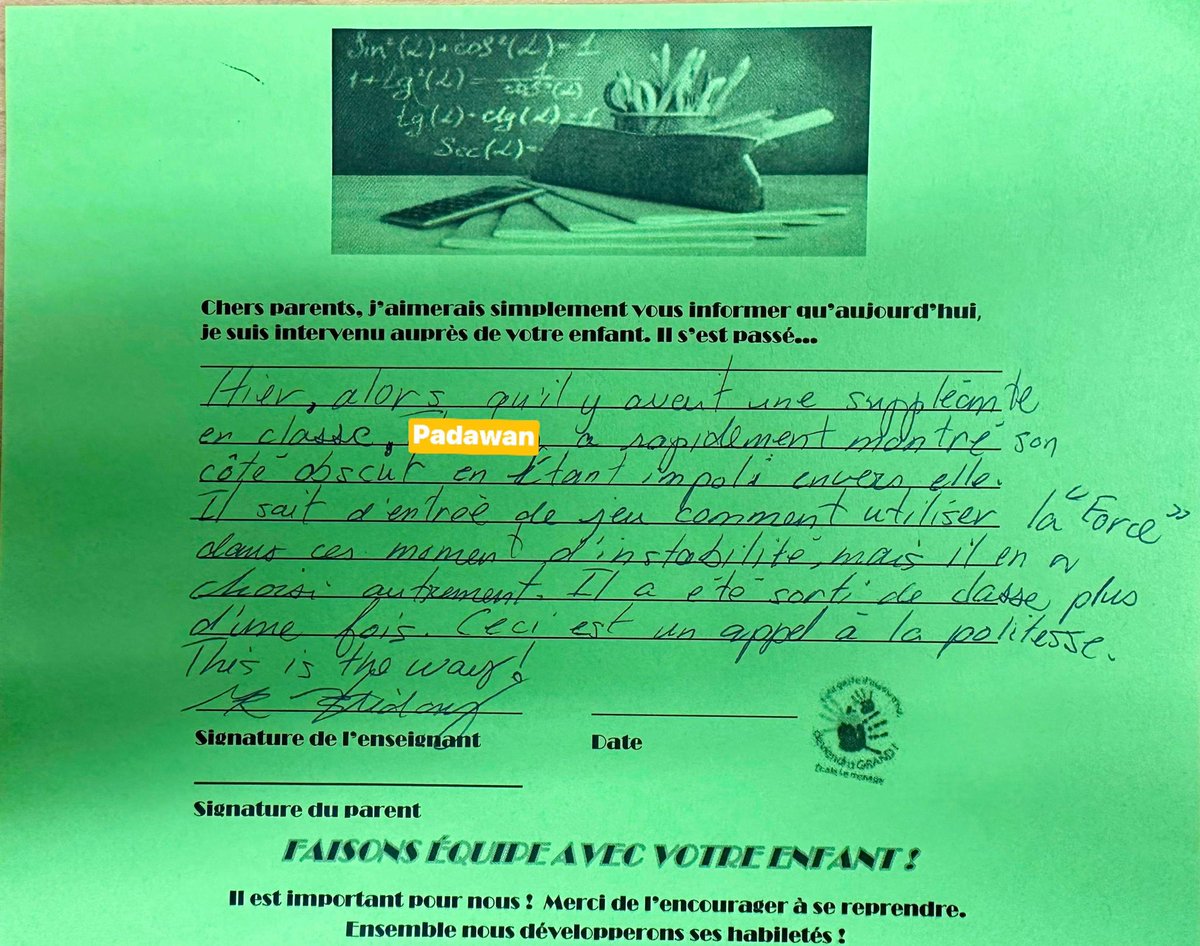 Sin²(α)+cos²(α)=1
1+tg²(α)=
tg(α)·ctg(α)=1
Sec(α)=
Chers parents, j'aimerais simplement vous informer qu'aujourd'hui,
je suis intervenu auprès de votre enfant. Il s'est passé...
Hier, alors qu'il y avait une suppléante
en classe, Padawan a rapidement montré son
côté obscur en étant impoli envers elle.
Il sait d'entrée de jeu comment utiliser la "Force"
dans ces moment d'instabilité, mais il en a
choisi autrement. Il a été sorti de classe plus
d'une fois. Ceci est un appel à la politesse.
This is the way!
Signature de l'enseignant
Date
Signature du parent
FAISONS ÉQUIPE AVEC VOTRE ENFANT !
Il est important pour nous ! Merci de l'encourager à se reprendre.
Ensemble nous développerons ses habiletés !